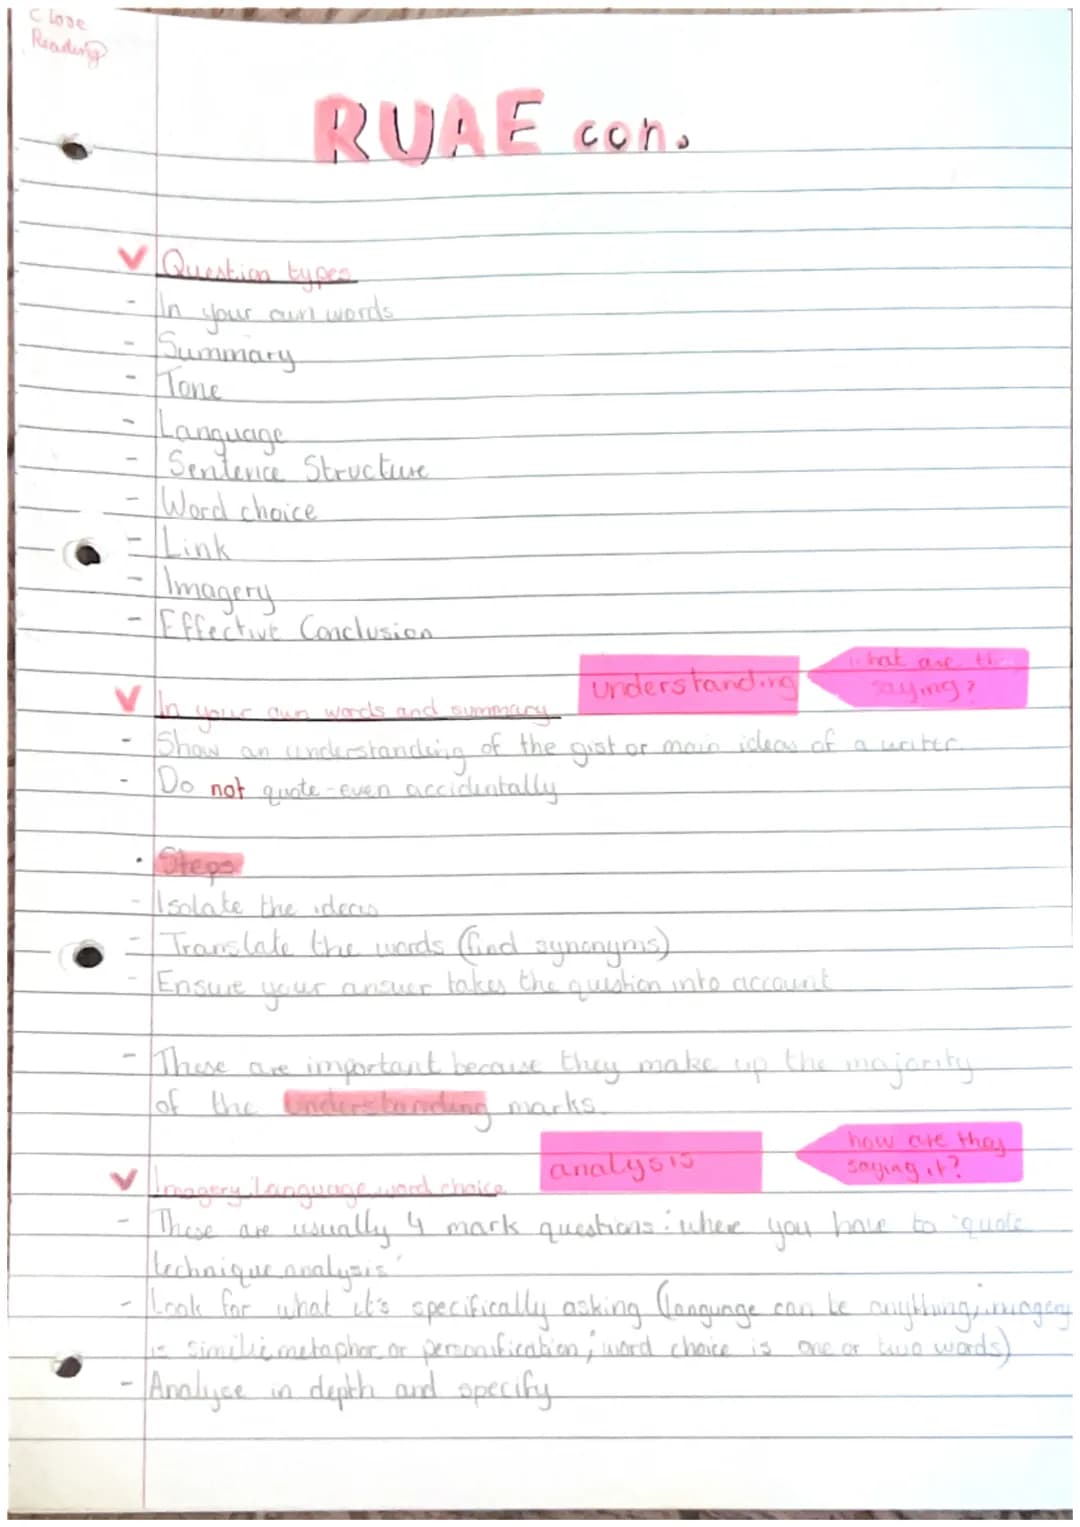 Close
Reading
RUAE con.
Question types
- In your own words
- Summary
- Tone
- Language
- Sentence Structure
- Word choice
- Link
- Imagery
- Effective Conclusion
understanding
what are they
saying?
In your own words and summary
- Show an understanding of the gist or main ideas of a writer.
- Do not quote - even accidentally
• Steps
- Isolate the ideas
- Translate the words (find synonyms)
- Ensure your answer takes the question into account
- These are important because they make up the majority
of the understanding marks.
analysis
how are they
saying it?
Imagery, language, word choice
- These are usually 4 mark questions: where you have to 'quote
technique analysis'
- Look for what it's specifically asking (language can be anything; imagery
is simile, metaphor or personification; word choice is one or two words)
- Analyse in depth and specify